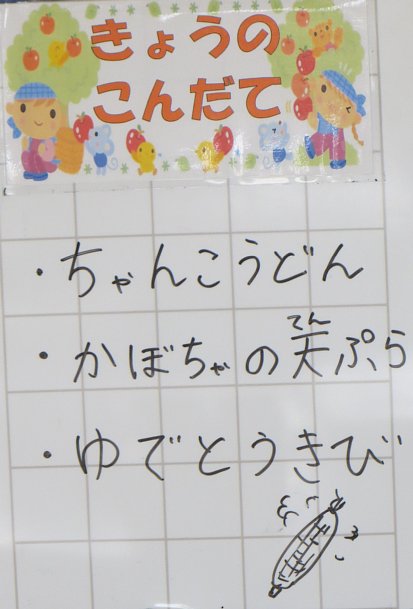 きょうの
こんだて
・ちゃんこうどん
てん
・かぼちゃの天ぷら
・ゆでとうきび